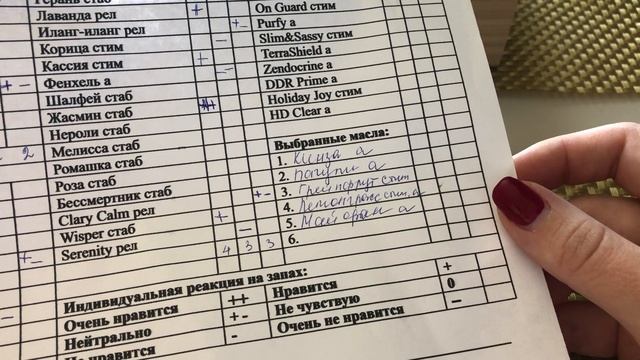 Герань стаб
Лаванда рел +
Иланг-иланг рел
Корица стим -
Кассия стим +
+ - Фенхель а --
Шалфей стаб
Жасмин стаб
Нероли стаб
2 Мелисса стаб
Ромашка стаб
Роза стаб
Бессмертник стаб
Clary Calm рел +
Wisper стаб -
+- Serenity рел 4 3 3
On Guard стим
+- Purfy а
Slim&Sassy стим
TerraShield а
Zendocrine а
DDR Prime а
Holiday Joy стим
HD Clear а
Выбранные масла:
1. Кинза а
2. а
+- 3. Грейпфрут стим
4. Лемонграсс стим, а
5. Майоран а
6.
Индивидуальная реакция на запах:
Очень нравится ++ Нравится +
Нейтрально +- Не чувствую 0
Не нравится - Очень не нравится --